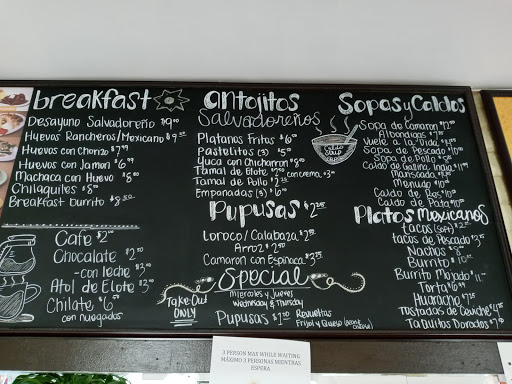 breakfast
Desayuno Salvadoreño $9.00
Huevos Rancheros/Mexicano $9.50
Huevos con Chorizo $7.99
Huevos con Jamon $6.99
Machaca con Huevo $8.00
Chilaquiles $8.00
Breakfast burrito $8.50
Cafe $2
Chocalate $2.50
-con leche $3.00
Atol de Elote $3.00
Chilate $6.00
con nuegados
antojitos
Salvadoreños
Platanos Fritos $6.00
Pastelitos (3) $5.00
Yuca con Chicharron $8.00
Tamal de Elote $2.00 con crema $3.00
Tamal de Pollo $2.25
Empanadas (3) $6.00
Pupusas $2.25
Loroco/Calabaza $2.50
Arroz $2.50
Camaron con Espinaca $3.75
Special
Miercoles y Jueves
Wednesday & Thursday
Take-Out
ONLY
Pupusas $1.50
Revueltas
Frijol y Queso
Sopas y Caldos
Caldo
Soup
Sopa de Camaron $12.00
Albondigas $9.00
Vuelve a la Vida
Sopa de Pescado $10.00
Sopa de Pollo $8.00
Caldo de Gallina India $11.99
Mariscada
Menudo $10.00
Caldo de Res $10.00
Caldo de Pata $10.00
Platos Mexicanos
tacos (soft) $2.00
tacos de Pescado $3.75
Nachos $8.00
Burrito $10.00
Burrito Mojado $11.00
Torta $6.99
Huarache $7.25
Tostadas de Ceviche $4.75
Taquitos Dorados $7.00
3 PERSON MAX WHILE WAITING
MÁXIMO 3 PERSONAS MIENTRAS
ESPERA